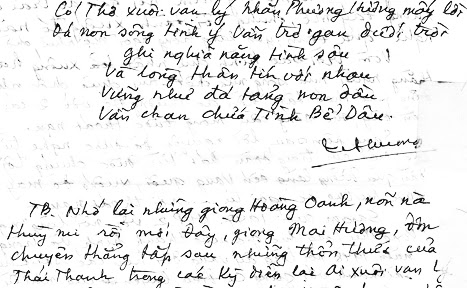 Cỏ Thơ xuôi vạn lý Nhân Phương Hương mấy lời
Đá non sông tình ý Vẫn trơ gan dưới trời
ghi nghĩa nặng tình sâu !
Và lòng thân tín với nhau
Vững như đá tảng non đầu
Vẫn chan chứa Tình Bể Dâu.
TB. Nhớ lại những giọng Hoàng Oanh, nỗn nà
thùy mị rồi mới đây, giọng Mai Hương, đôn
chuyên thẳng tắp sau những thổn thức của
Thái Thanh trong các Kỳ diễn lại Ai xuôi vạn l